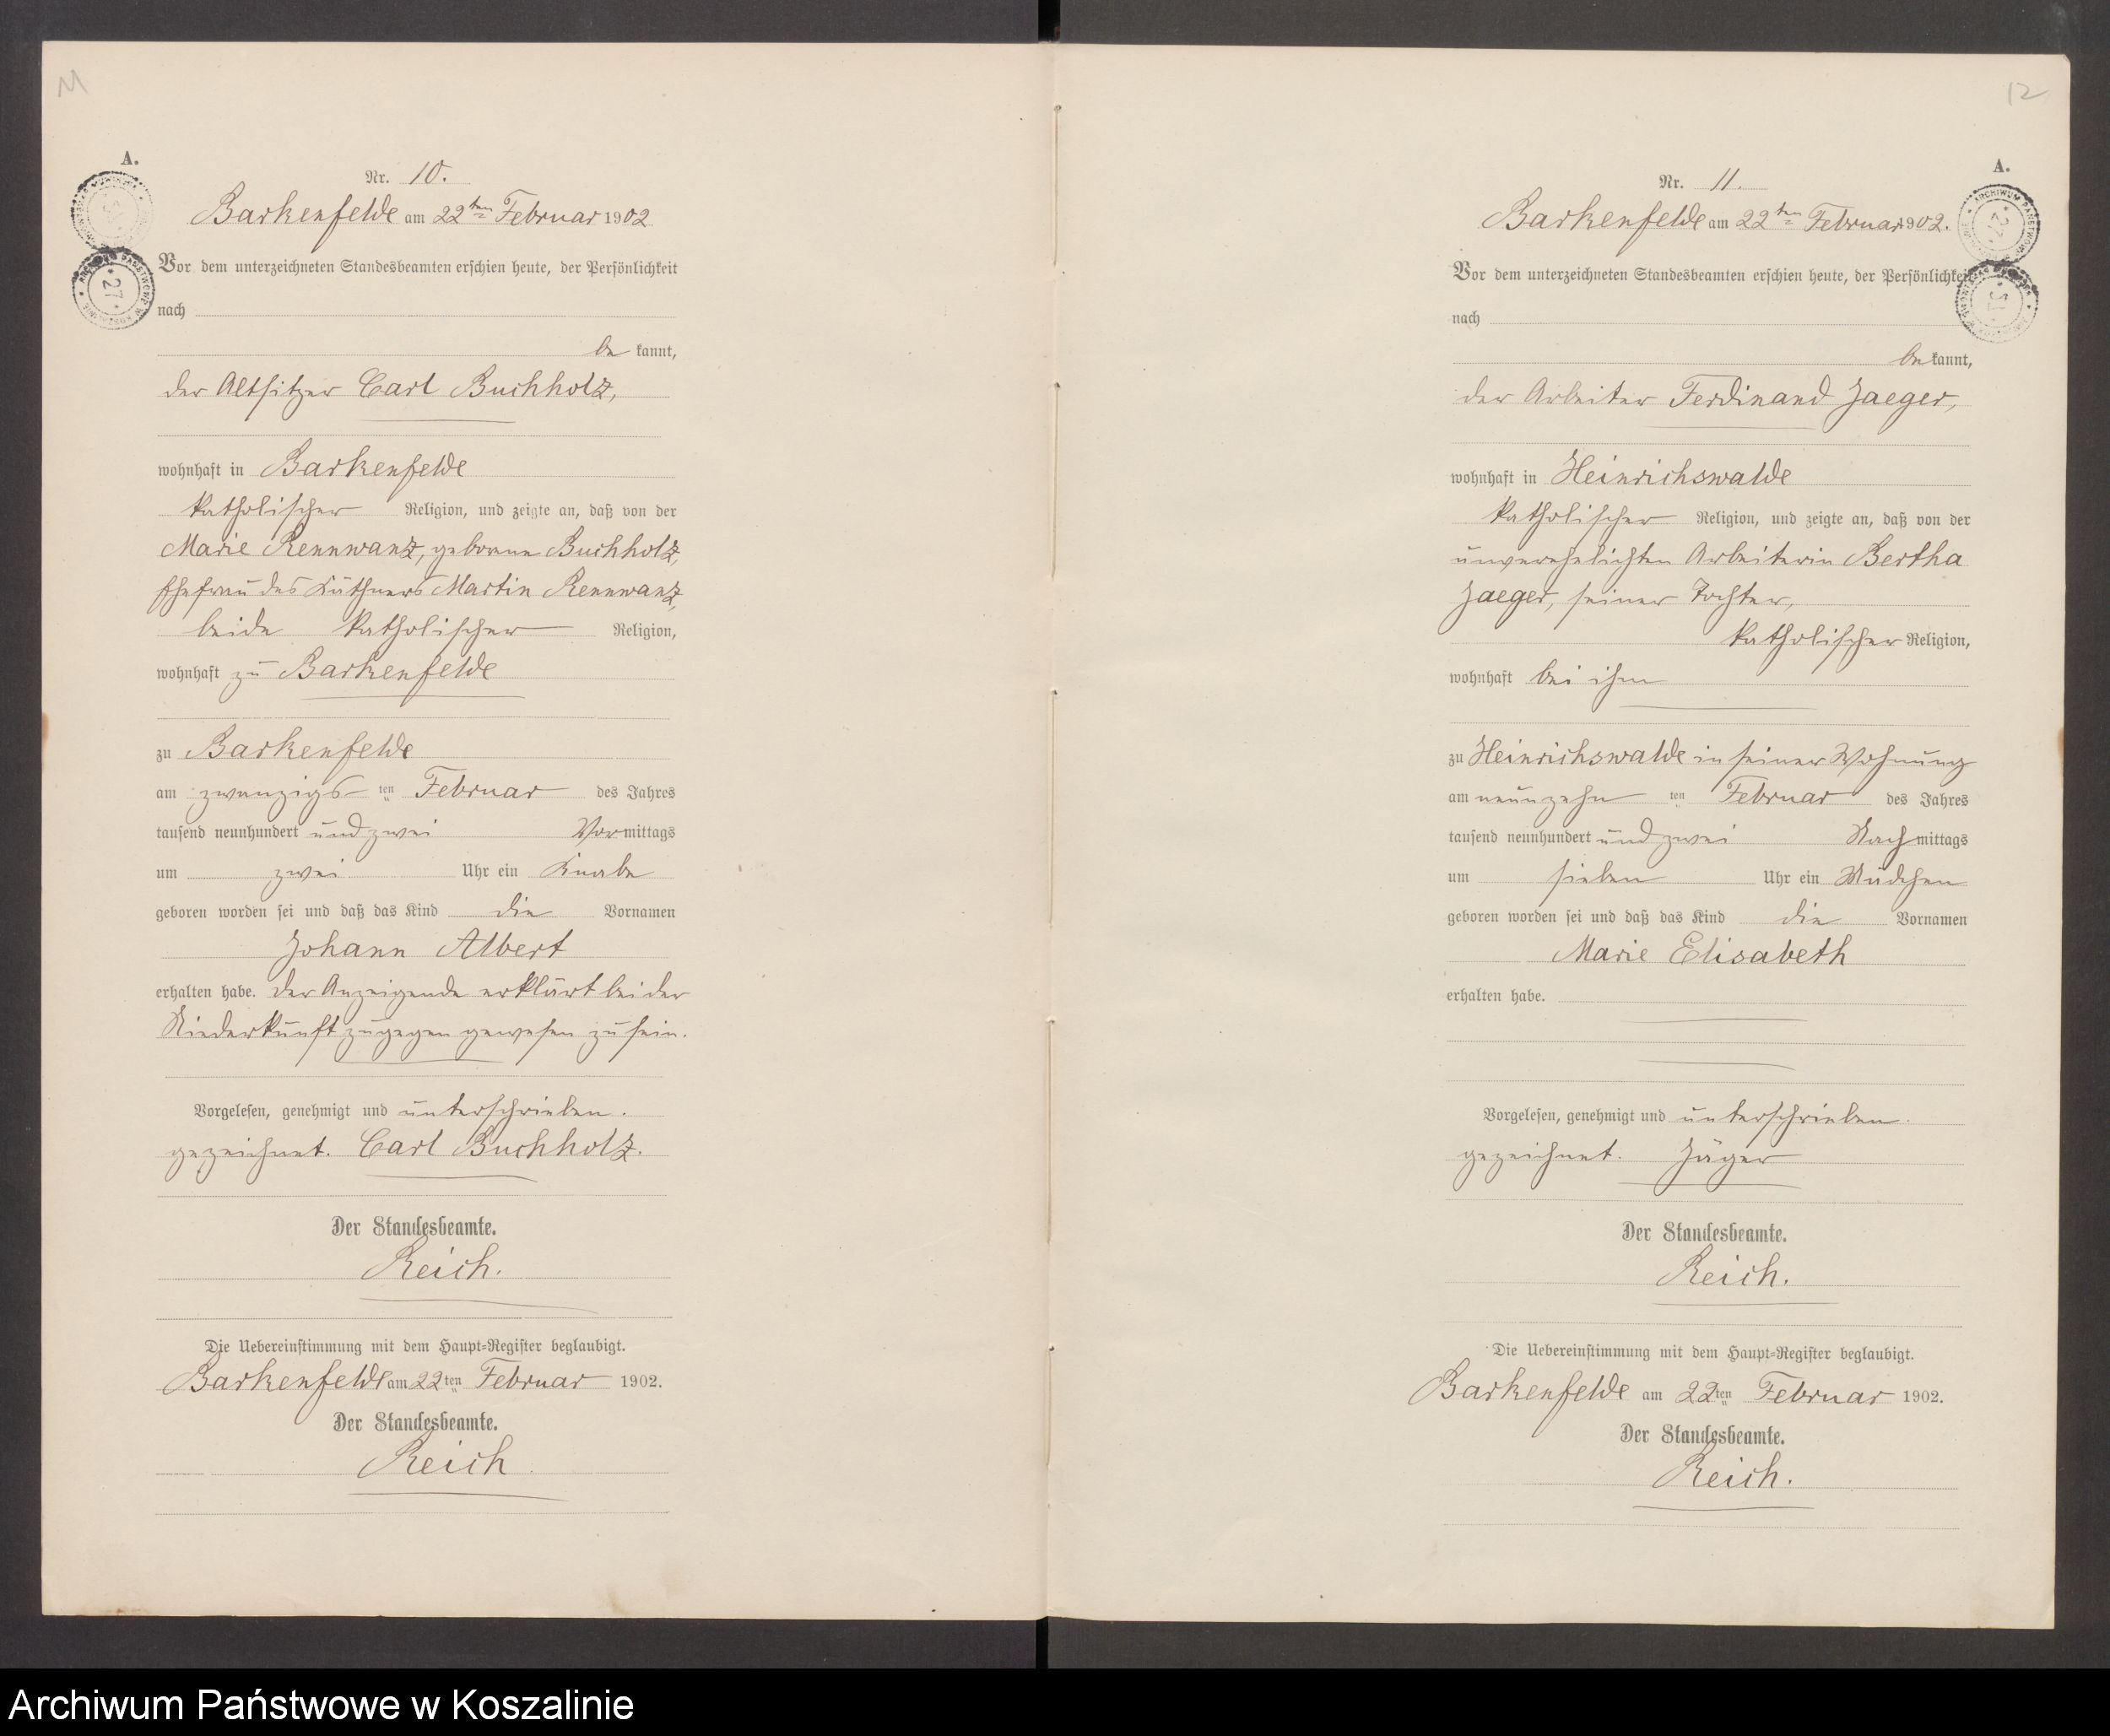 11
A.
Nr. 10.
Barkenfelde am 22ten Februar 1902
Vor dem unterzeichneten Standesbeamten erschien heute, der Persönlichkeit
nach
be kannt,
der Altsitzer Carl Buchholz,
wohnhaft in Barkenfelde
katholischer Religion, und zeigte an, daß von der
Marie Rennwanz, geborene Buchholz,
Ehefrau des Käthners Martin Rennwanz,
beide katholischer Religion,
wohnhaft zu Barkenfelde
zu Barkenfelde
am zwanzigs ten Februar des Jahres
tausend neunhundert und zwei Vormittags
um zwei Uhr ein Knabe
geboren worden sei und daß das Kind die Vornamen
Johann Albert
erhalten habe. Der Anzeigende erklärt bei der
Niederkunft zugegen gewesen zu sein.
Vorgelesen, genehmigt und unterschrieben.
gezeichnet. Carl Buchholz.
Der Standesbeamte.
Reich.
Die Uebereinstimmung mit dem Haupt-Register beglaubigt.
Barkenfelde am 22ten Februar 1902.
Der Standesbeamte.
Reich
12
A.
ARCHIWUM PAŃSTWOWE W KOSZALINIE
27
Nr. 11.
Barkenfelde am 22ten Februar 1902.
Vor dem unterzeichneten Standesbeamten erschien heute, der Persönlichkeit
nach
be kannt,
der Arbeiter Ferdinand Jaeger,
wohnhaft in Heinrichswalde
katholischer Religion, und zeigte an, daß von der
unverehelichten Arbeiterin Bertha
Jaeger, seiner Tochter,
katholischer Religion,
wohnhaft bei ihm
zu Heinrichswalde in seiner Wohnung
am neunzehn ten Februar des Jahres
tausend neunhundert und zwei Nachmittags
um sieben Uhr ein Mädchen
geboren worden sei und daß das Kind die Vornamen
Marie Elisabeth
erhalten habe.
Vorgelesen, genehmigt und unterschrieben.
gezeichnet. Jäger
Der Standesbeamte.
Reich.
Die Uebereinstimmung mit dem Haupt-Register beglaubigt.
Barkenfelde am 22ten Februar 1902.
Der Standesbeamte.
Reich.
Archiwum Państwowe w Koszalinie